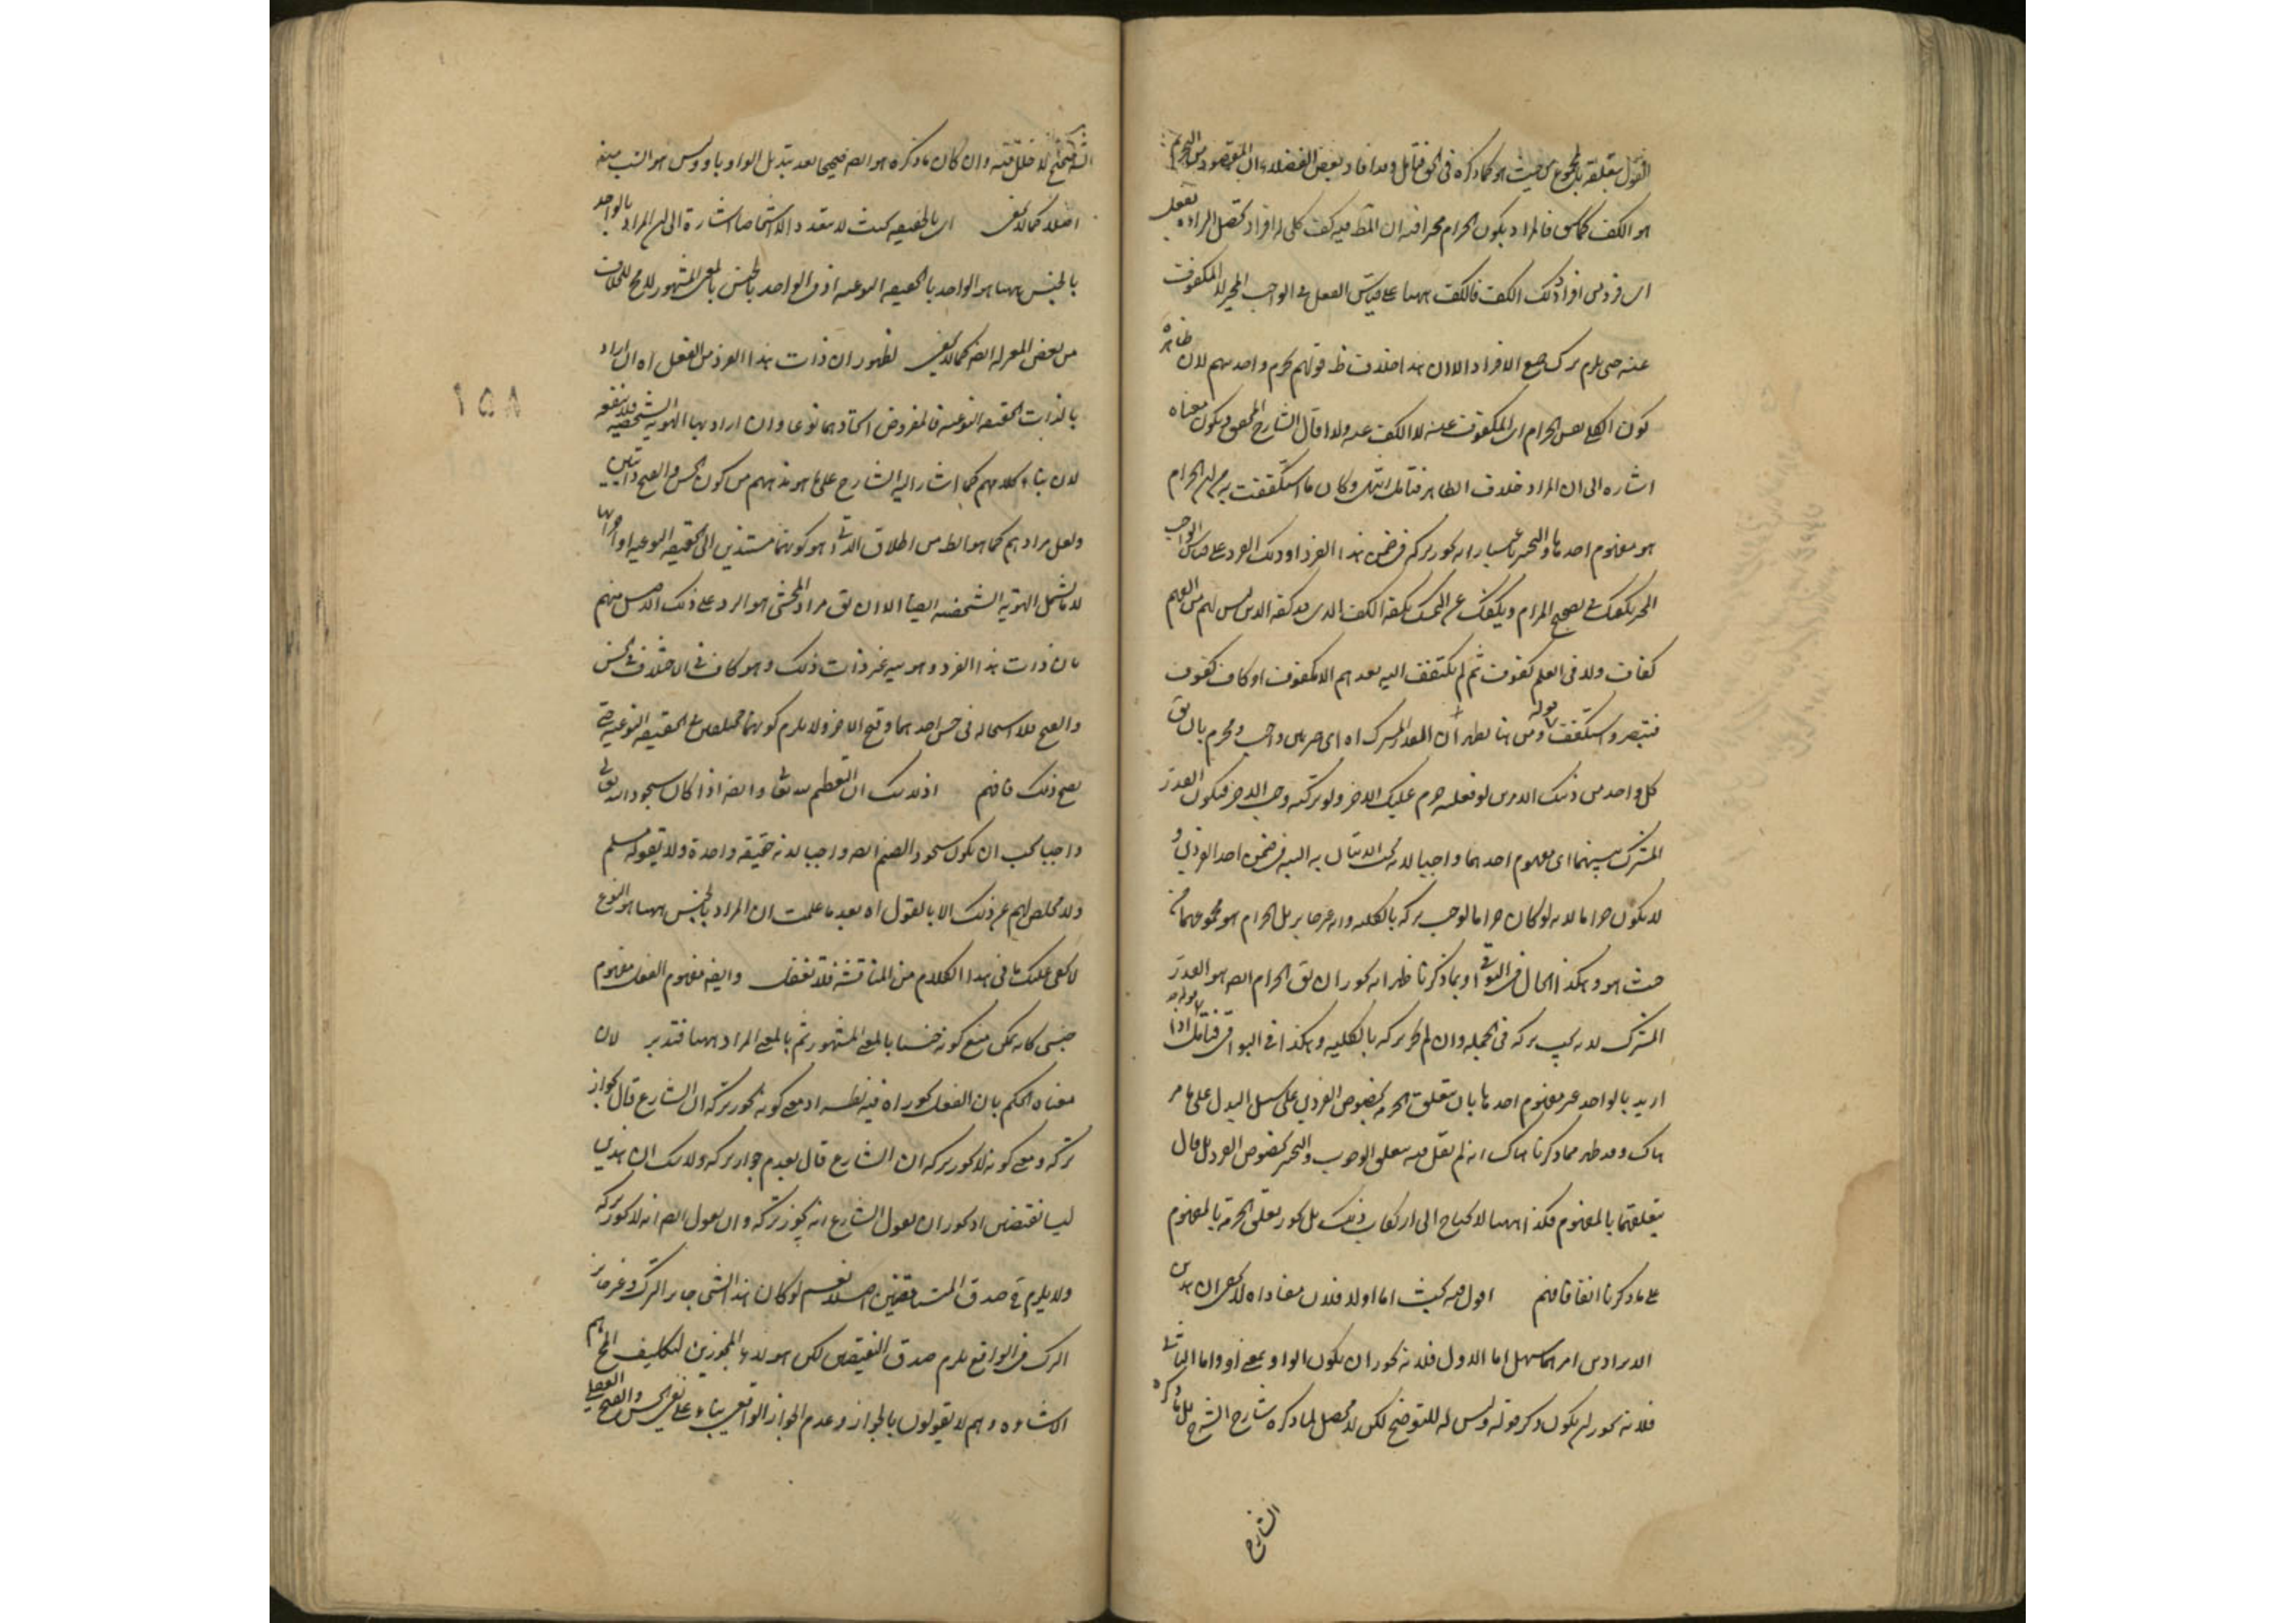 القول بتعلقه بالمجموع من حيث هو كما ذكره في الحق فتأمل وما افاد بعض الفضلاء ان المقصود من التحريم
هو الكف فالمراد بكون الحرام مخيرا فيه ان المط فيه كف كلي له افراد كتصل المراد
اى فرد من افراد ذلك الكف فالكف ههنا على قياس الفعل في الواجب المخير لا المكفوف
عنه حتى يلزم ترك جميع الافراد الا ان هذا خلاف ظ قولهم يحرم واحد مبهم لان ظاهره
كون الكلى نفس الحرام اى المكفوف عنه لا الكف عنه ولذا قال الشارح المحقق ويكون معناه
اشاره الى ان المراد خلاف الظاهر فتأمل انتهى وكان ما استكففت به من ان الحرام
هو مفهوم احدها والتخيير باعتبار انه يجوز تركه في ضمن هذا الفرد او ذلك الفرد على قياس الواجب
المخير يكفيك في تصحيح المرام ويكفك عن التمسك بكفة الكف الذى كفه الذين ليس لهم من الفهم
كفاف ولا في العلم كفوف ثم لم يكتفف اليه بعدهم الا مكفوف او كاف كفوف
فتبصر واستكفف قوله ومن هنا يظهر ان القدر المشترك اه اى حرام واجب ومحرم بان يق
كل واحد من ذينك الامرين لو فعله حرم عليك الاخر ولو تركته وجب الاخر فيكون القدر
المشترك بينهما اى مفهوم احدهما واجبا لانه يجب الاتيان به البتة في ضمن احد الفردين و
لا يكون حراما لانه لو كان حراما لوجب تركه بالكلية وانه غير جايز بل الحرام هو مجموعهما من
حيث هو وهكذا الحال في البواقى او بما ذكرنا ظهر انه يجوز ان يق الحرام ايضه هو القدر
المشترك لانه يجب تركه في الجملة وان لم يجز تركه بالكلية وهكذا في البواقى فتأمل قوله اذا
اريد بالواحد غير مفهوم احدها بان يتعلق الحرمة بخصوص الفردين على سبيل البدل على ما مر
هناك وقد ظهر مما ذكرنا هناك انه لم يقل فيه بتعلق الوجوب والتخيير بخصوص الفرد بل قال
بتعلقهما بالمفهوم فكذا ههنا لا يحتاج الى ارتكاب ذلك بل يجوز تعلق الحرمة بالمفهوم
على ما ذكرنا انفا فافهم اقول فيه بحث اما اولا فلان مفاداه لا يخفى ان هذين
الايرادين امرهما سهل اما الاول فلانه يجوز ان يكون الواو بمعنى أو واما الثانى
فلانه يجوز ان يكون ذكر قوله وليس له للتوضيح لكن لا محصل لما ذكره شارح الشرح بل ما ذكره
الشارح
لا خلل فيه وان كان ما ذكره هو ايضه صحيحا بعد تبديل الواو باو وليس هو انسب منه
اصلا كما لا يخفى اى بالحقيقة بحيث لا يتعدد الا اشخاصا اشارة الى ان المراد بالواحد
بالجنس ههنا هو الواحد بالحقيقة النوعية اذ في الواحد بالجنس بالمعنى المشهور لا يصح الخلاف
من بعض المعتزلة ايضه كما لا يخفى لظهور ان ذات هذا الفرد من الفعل اه ان اراد
بالذات الحقيقة النوعية فالمفروض اتحادهما نوعا وان اراد بها الهوية الشخصية فلا ينفعه
لان بناء كلامهم كما اشار اليه الشارح على ما هو مذهبهم من كون الحسن والقبح ذاتيين
ولعل مرادهم كما هو الظ من اطلاق الذاتى هو كونهما مستندين الى الحقيقة النوعية او اجزائها
لا ما يشمل الهوية الشخصية ايضا الا ان يق مراد المحشى هو الرد على ذلك الاصل منهم
بان ذات هذا الفرد وهويته غير ذات ذلك وهو كاف في الاختلاف في الحسن
والقبح فلا استحالة في حسن احدهما وقبح الاخر ولا يلزم كونهما مختلفين في الحقيقة النوعية حتى
يصح ذلك فافهم اذ لا شك ان التعظيم لله تعالى وايضه اذا كان سجود الله تعالى
واجبا يجب ان يكون سجود الصنم ايضه واجبا لانه حقيقة واحدة ولا يتفوه به مسلم
ولا مخلص لهم عن ذلك الا بالقول اه بعد ما علمت ان المراد بالجنس ههنا هو النوع
لا يخفى عليك ما في هذا الكلام من المناقشة فلا تغفل وايضه مفهوم الفعل مفهوم
جنسى كانه يمكن منع كونه جنسا بالمعنى المشهور ثم بالمعنى المراد ههنا فتدبر لان
معناه الحكم بان الفعل يجوز اه فيه نظر اذ معنى كونه يجوز تركه ان الشارع قال بجواز
تركه ومعنى كونه لا يجوز تركه ان الشارع قال بعدم جواز تركه ولا شك ان هذين
ليسا نقيضين اذ يجوز ان يقول الشارع انه يجوز تركه وان يقول ايضه انه لا يجوز تركه
ولا يلزم في صدق المتناقضين اصلا نعم لو كان هذا الشىء جايز الترك وغير جايز
الترك في الواقع يلزم صدق النقيضين لكن هولاء المجوزين لتكليف المح هم
الاشاعرة وهم لا يقولون بالجواز وعدم الجواز الواقعى بناء على نفى الحسن والقبح العقلى
١٥٨